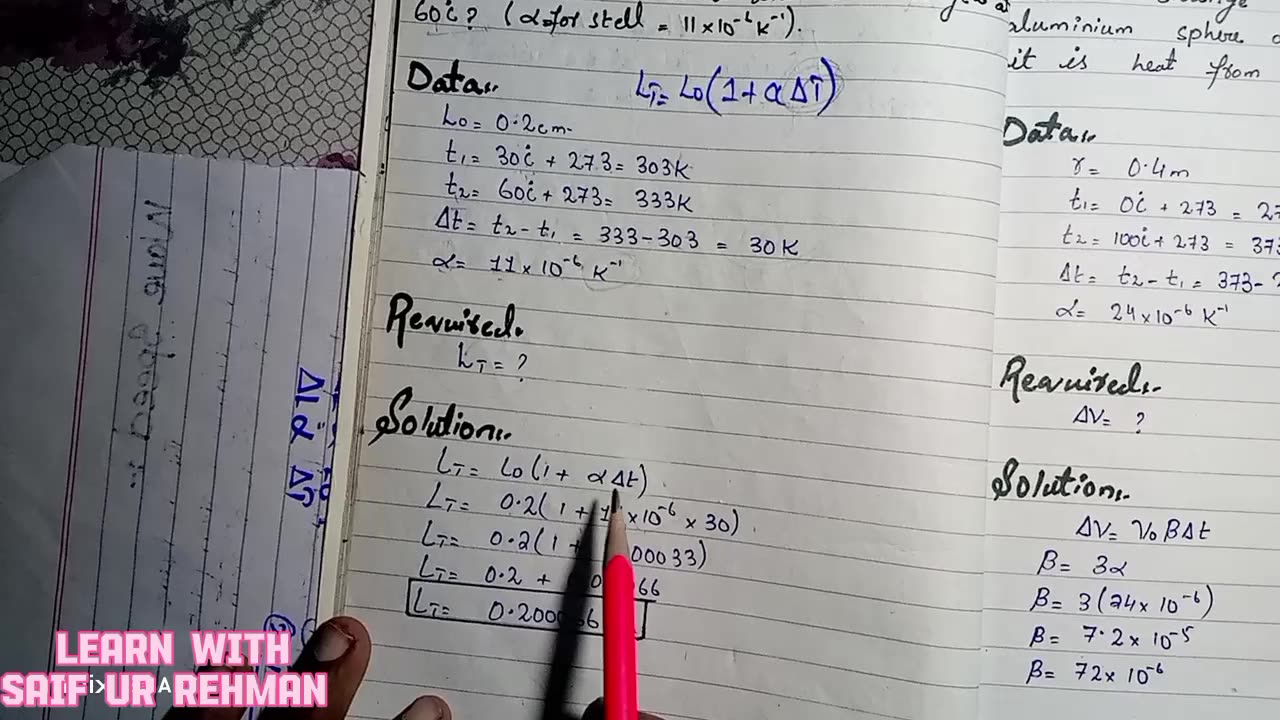 60ċ? (α for stell = 11×10⁻⁶ K⁻¹).
Data:.
L_T = L₀(1 + α ΔT)
L₀ = 0.2cm
t₁ = 30ċ + 273 = 303K
t₂ = 60ċ + 273 = 333K
Δt = t₂ - t₁ = 333 - 303 = 30 K
α = 11 × 10⁻⁶ K⁻¹
Required.
L_T = ?
Solution:.
L_T = L₀(1 + αΔt)
L_T = 0.2(1 + 1 × 10⁻⁶ × 30)
L_T = 0.2(1 + 00033)
L_T = 0.2 + 66
L_T = 0.200 66
aluminium sphere
it is heat from
Data:.
r = 0.4m
t₁ = 0ċ + 273 = 2
t₂ = 100ċ + 273 = 373
Δt = t₂ - t₁ = 373 -
α = 24 × 10⁻⁶ K⁻¹
Required:.
ΔV = ?
Solution:.
ΔV = V₀ β Δt
β = 3α
β = 3(24 × 10⁻⁶)
β = 7.2 × 10⁻⁵
β = 72 × 10⁻⁶
ΔT
LEARN WITH
SAIF UR REHMAN